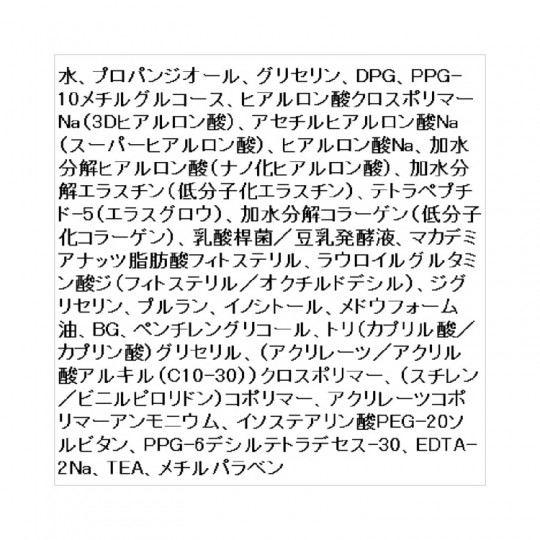 水、プロパンジオール、グリセリン、DPG、PPG-
10メチルグルコース、ヒアルロン酸クロスポリマー
Na(3Dヒアルロン酸)、アセチルヒアルロン酸Na
(スーパーヒアルロン酸)、ヒアルロン酸Na、加水
分解ヒアルロン酸(ナノ化ヒアルロン酸)、加水分
解エラスチン(低分子化エラスチン)、テトラペプチ
ド-5(エラスグロウ)、加水分解コラーゲン(低分子
化コラーゲン)、乳酸桿菌/豆乳発酵液、マカデミ
アナッツ脂肪酸フィトステリル、ラウロイルグルタミ
ン酸ジ(フィトステリル/オクチルドデシル)、ジグ
リセリン、プルラン、イノシトール、メドウフォーム
油、BG、ペンチレングリコール、トリ(カプリル酸/
カプリン酸)グリセリル、(アクリレーツ/アクリル
酸アルキル(C10-30))クロスポリマー、(スチレン
/ビニルピロリドン)コポリマー、アクリレーツコポ
リマーアンモニウム、イソステアリン酸PEG-20ソ
ルビタン、PPG-6デシルテトラデセス-30、EDTA-
2Na、TEA、メチルパラベン